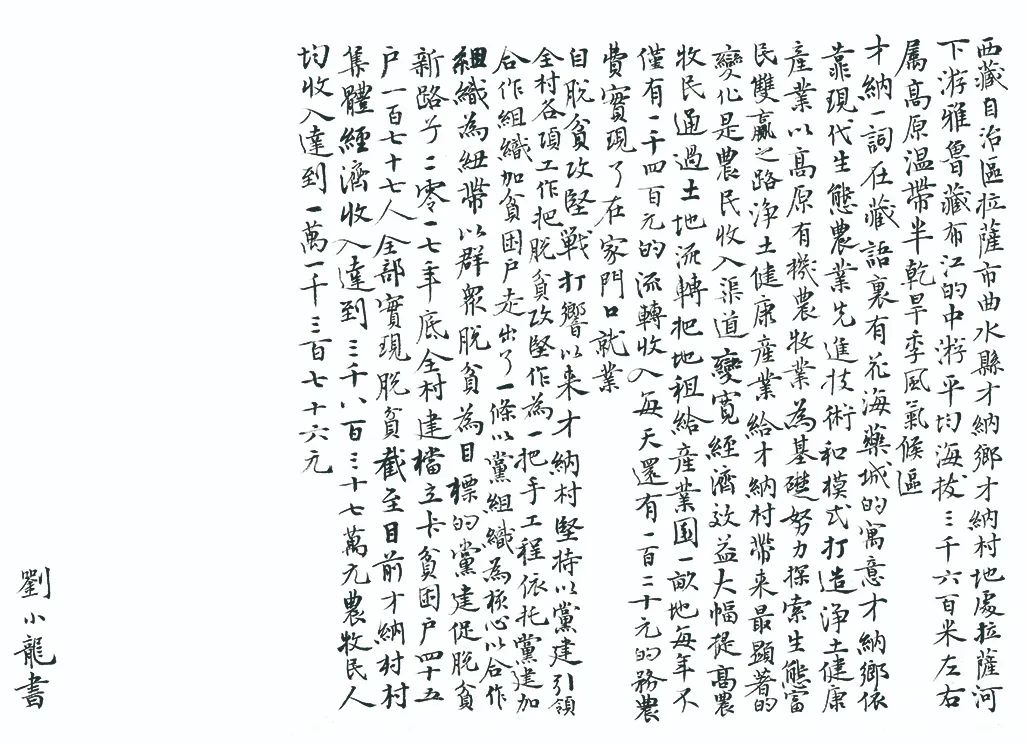 西藏自治區拉薩市曲水縣才納鄉才納村地處拉薩河
下游雅魯藏布江的中游平均海拔三千六百米左右
屬高原温帶半乾旱季風氣候區
才納一詞在藏語裏有花海藥城的寓意才納鄉依
靠現代生態農業先進技術和模式打造淨土健康
產業以高原有機農牧業為基礎努力探索生態富
民雙贏之路淨土健康產業給才納村帶来最顯著的
變化是農民收入渠道變寬經濟效益大幅提高農
牧民通過土地流轉把地租給產業園一畝地每年不
僅有一千四百元的流轉收入每天還有一百二十元的務農
費實現了在家門口就業
自脱貧攻堅戰打響以来才納村堅持以黨建引領
全村各項工作把脱貧攻堅作為一把手工程依托黨建加
合作組織加貧困户走出了一條以黨組織為核心以合作
組織為紐帶以群衆脱貧為目標的黨建促脱貧
新路子二零一七年底全村建檔立卡貧困户四十五
户一百七十七人全部實現脱貧截至目前才納村村
集體經濟收入達到三千八百三十七萬元農牧民人
均收入達到一萬一千三百七十六元
劉小龍書